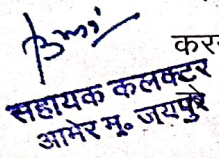 कर
सहायक कलक्टर
आमेर मु. जयपुर